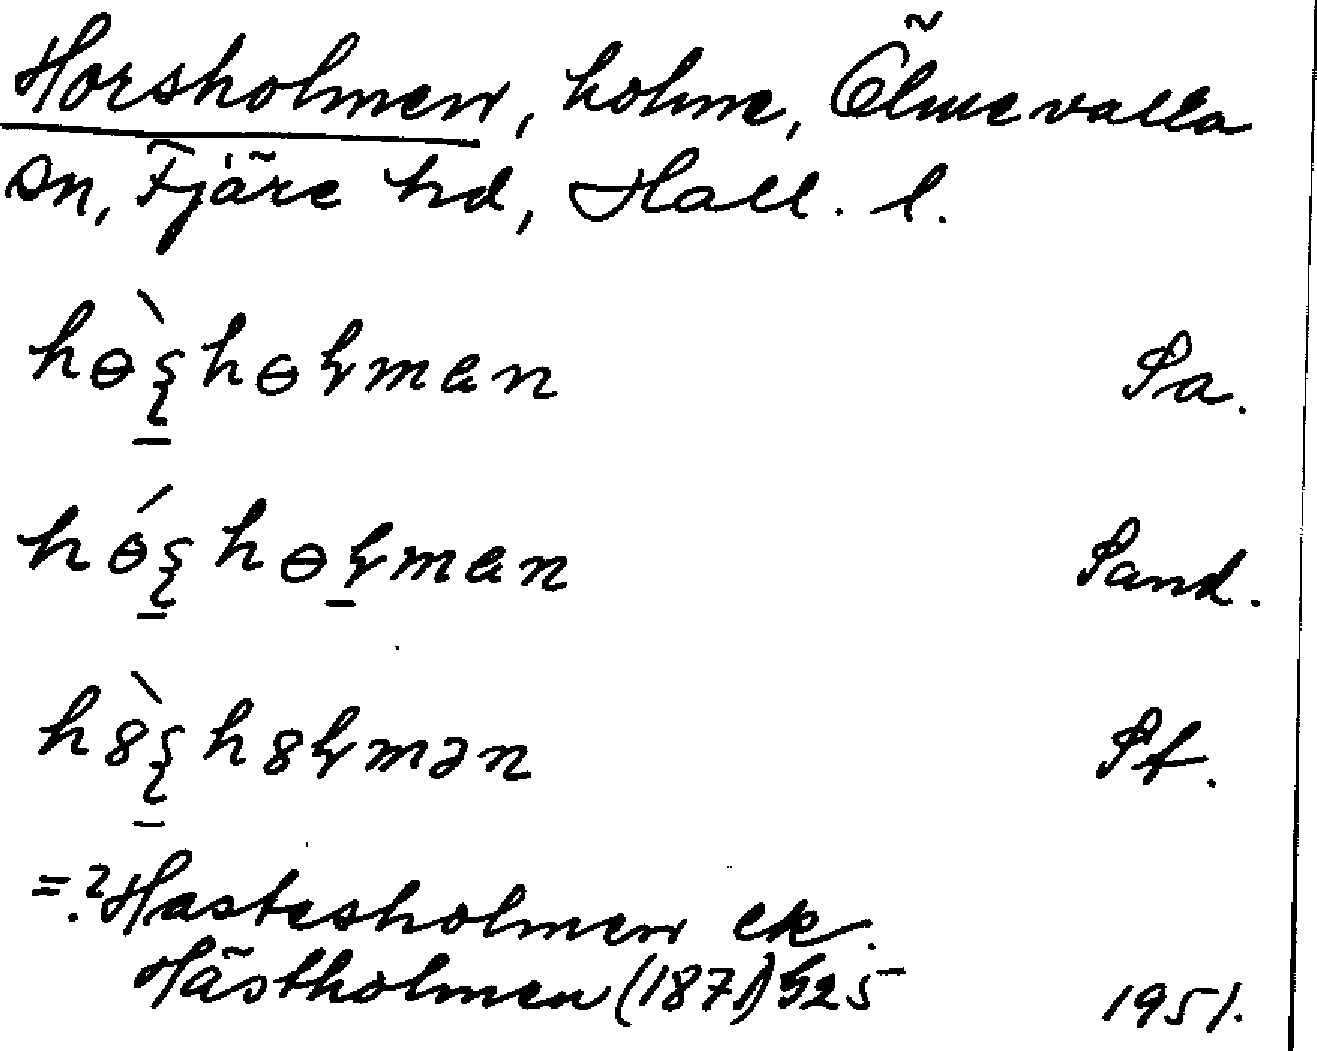 Horsholmen, holme, Ölmevalla
sn, Fjäre hd, Hall. l.
hɵ̀ʂhɵɫmen Sa.
hɵ́ʂhɵɫmen Sand.
h8̀ʂh8ɫmən Sf.
=? Hastesholmen ek.
Hästholmen (1871) G25 1951.